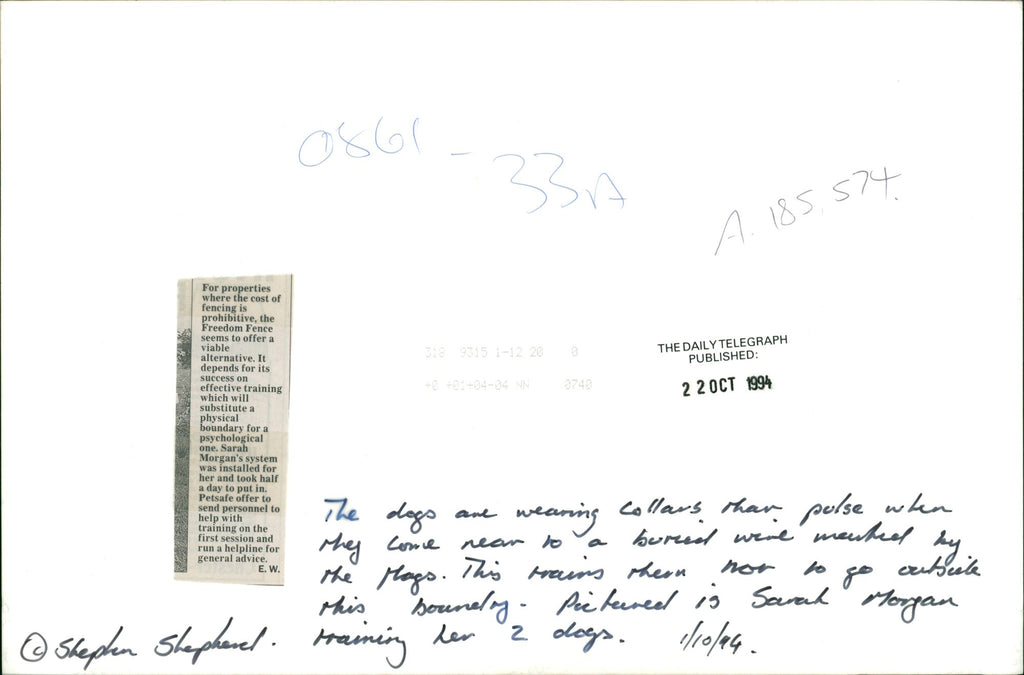 0861 - 33A
A. 185,574.
For properties
where the cost of
fencing is
prohibitive, the
Freedom Fence
seems to offer a
viable
alternative. It
depends for its
success on
effective training
which will
substitute a
physical
boundary for a
psychological
one. Sarah
Morgan's system
was installed for
her and took half
a day to put in.
Petsafe offer to
send personnel to
help with
training on the
first session and
run a helpline for
general advice.
E. W.
310 9315 1-12 20 0
+0 +01-04-04 NN 0740
THE DAILY TELEGRAPH
PUBLISHED:
22 OCT 1994
The dogs are wearing collars that pulse when
they come near to a buried wire marked by
the flags. This trains them not to go outside
this boundry. Pictured is Sarah Morgan
training her 2 dogs. 1/10/94.
© Stephen Shepherd.